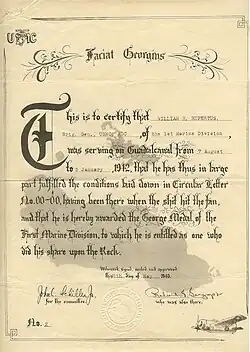 USMC
Faciat Georgius
This is to certify that WILLIAM H. RUPERTUS,
Brig. Gen., USMC , of the 1st Marine Division,
was serving on Guadalcanal from 7 August
to January 1942, that he has thus in large
part fulfilled the conditions laid down in Circular Letter
No. 00-00, having been there when the shit hit the fan,
and that he is hereby awarded the George Medal of the
First Marine Division, to which he is entitled as one who
did his share upon the Rock.
Witnessed, signed, sealed and approved
day of May 1943.
for the committee.
who was also there.
No.